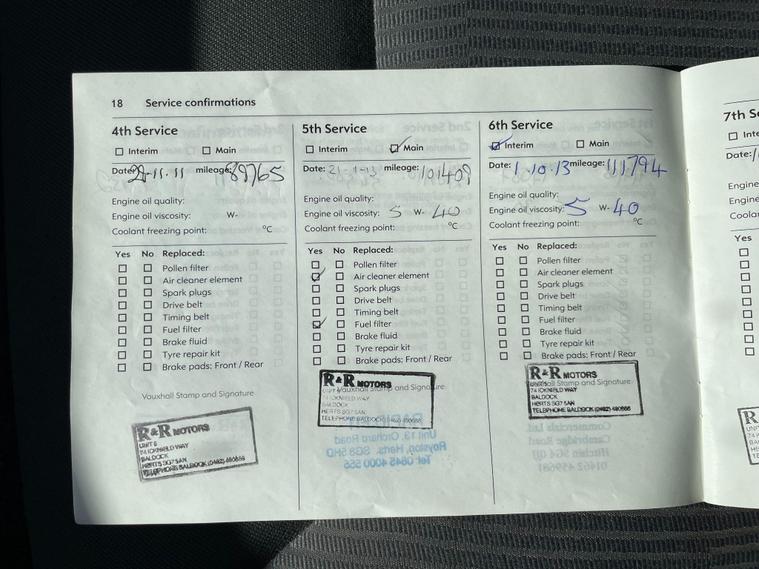 18 Service confirmations
4th Service
Interim Main
Date: -11.11 mileage: 89765
Engine oil quality:
Engine oil viscosity: W-
Coolant freezing point: °C
Yes No Replaced:
Pollen filter
Air cleaner element
Spark plugs
Drive belt
Timing belt
Fuel filter
Brake fluid
Tyre repair kit
Brake pads: Front / Rear
Vauxhall Stamp and Signature
R&R MOTORS
UNIT 6
74 ICKNIELD WAY
BALDOCK
HERTS SG7 5AN
TELEPHONE BALDOCK (0462)
5th Service
Interim Main
Date: 21-1-13 mileage: 101409
Engine oil quality:
Engine oil viscosity: 5 W- 40
Coolant freezing point: °C
Yes No Replaced:
Pollen filter
Air cleaner element
Spark plugs
Drive belt
Timing belt
Fuel filter
Brake fluid
Tyre repair kit
Brake pads: Front / Rear
Vauxhall Stamp and Signature
R&R MOTORS
74 ICKNIELD WAY
BALDOCK
HERTS SG7 5AN
TELEPHONE BALDOCK
6th Service
Interim Main
Date: 1.10.13 mileage: 111794
Engine oil quality:
Engine oil viscosity: 5 W- 40
Coolant freezing point: °C
Yes No Replaced:
Pollen filter
Air cleaner element
Spark plugs
Drive belt
Timing belt
Fuel filter
Brake fluid
Tyre repair kit
Brake pads: Front / Rear
Stamp and Signature
R&R MOTORS
74 ICKNIELD WAY
BALDOCK
HERTS SG7 5AN
TELEPHONE BALDOCK (0462)
7th Se
Inte
Date:
Engine
Engine
Coolan
Yes
R